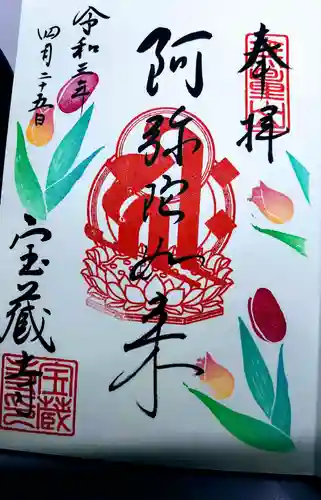 奉拝
阿弥陀如来
令和三年
四月二十五日
宝蔵寺